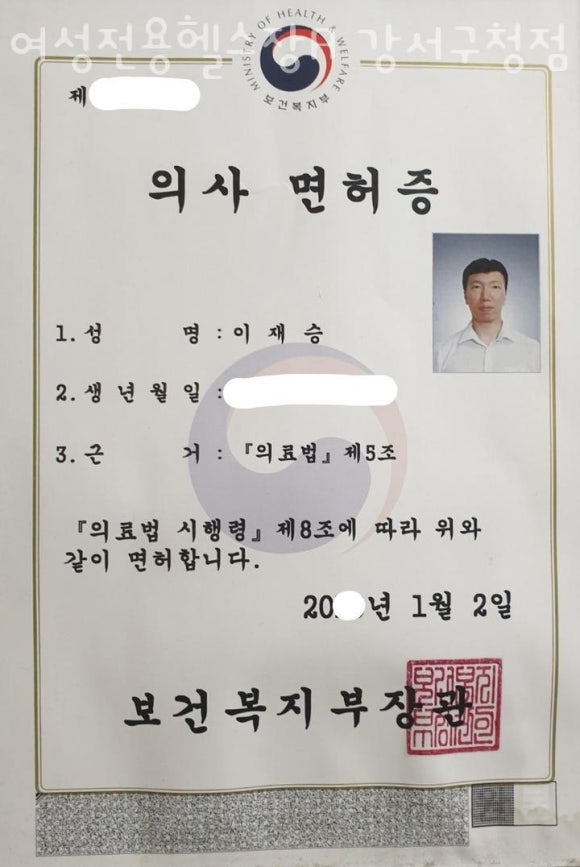 MINISTRY OF HEALTH & WELFARE
여성전용헬스장부 강서구청점
보건복지부
제
의사 면허증
1. 성 명 : 이 재 승
2. 생 년 월 일 :
3. 근 거 : 『의료법』 제5조
『의료법 시행령』 제8조에 따라 위와
같이 면허합니다.
20 년 1월 2일
보건복지부장관